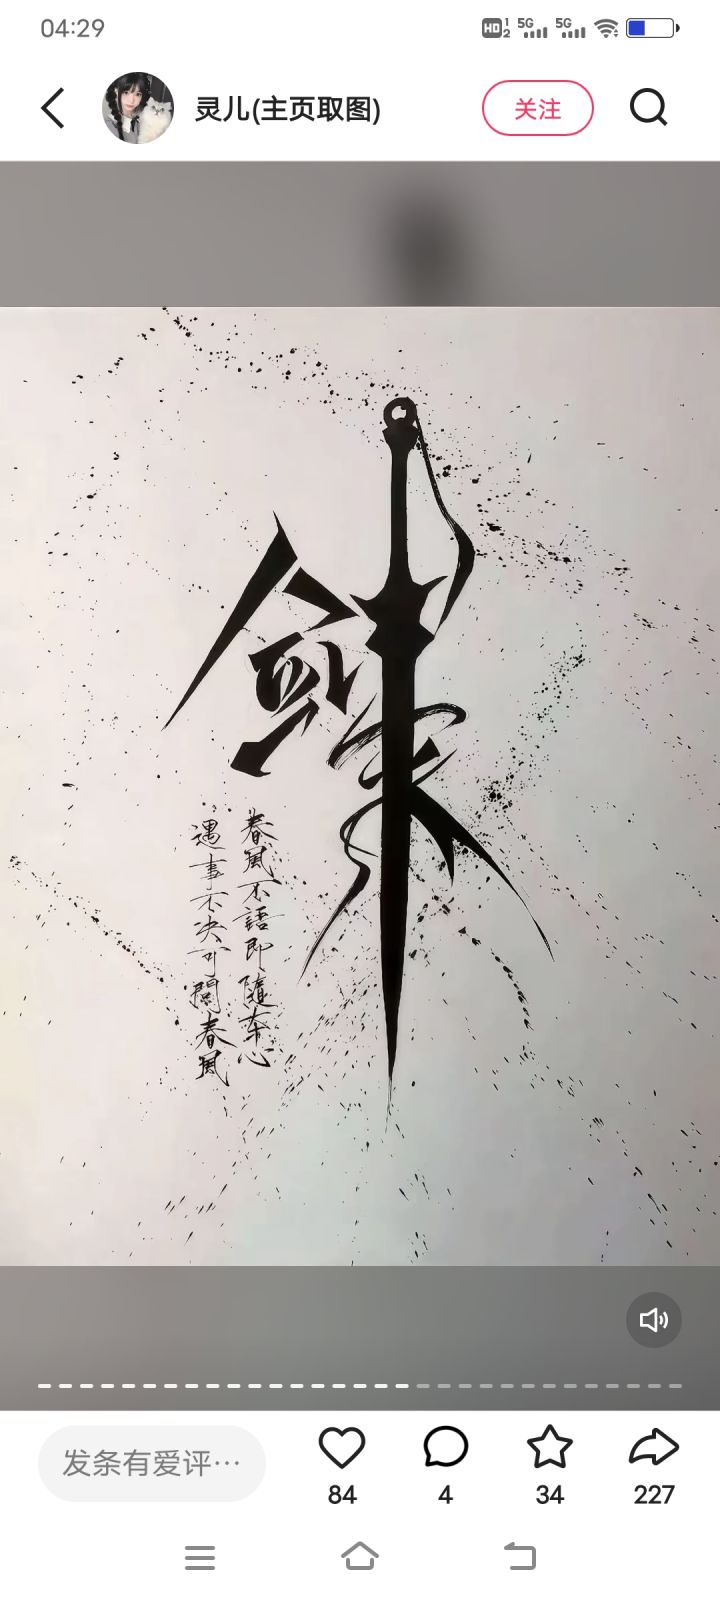 04:29
HD 1 2 5G 5G
灵儿(主页取图)
关注
劍
遇事不决可問春風
春風不語即隨本心
发条有爱评…
84
4
34
227